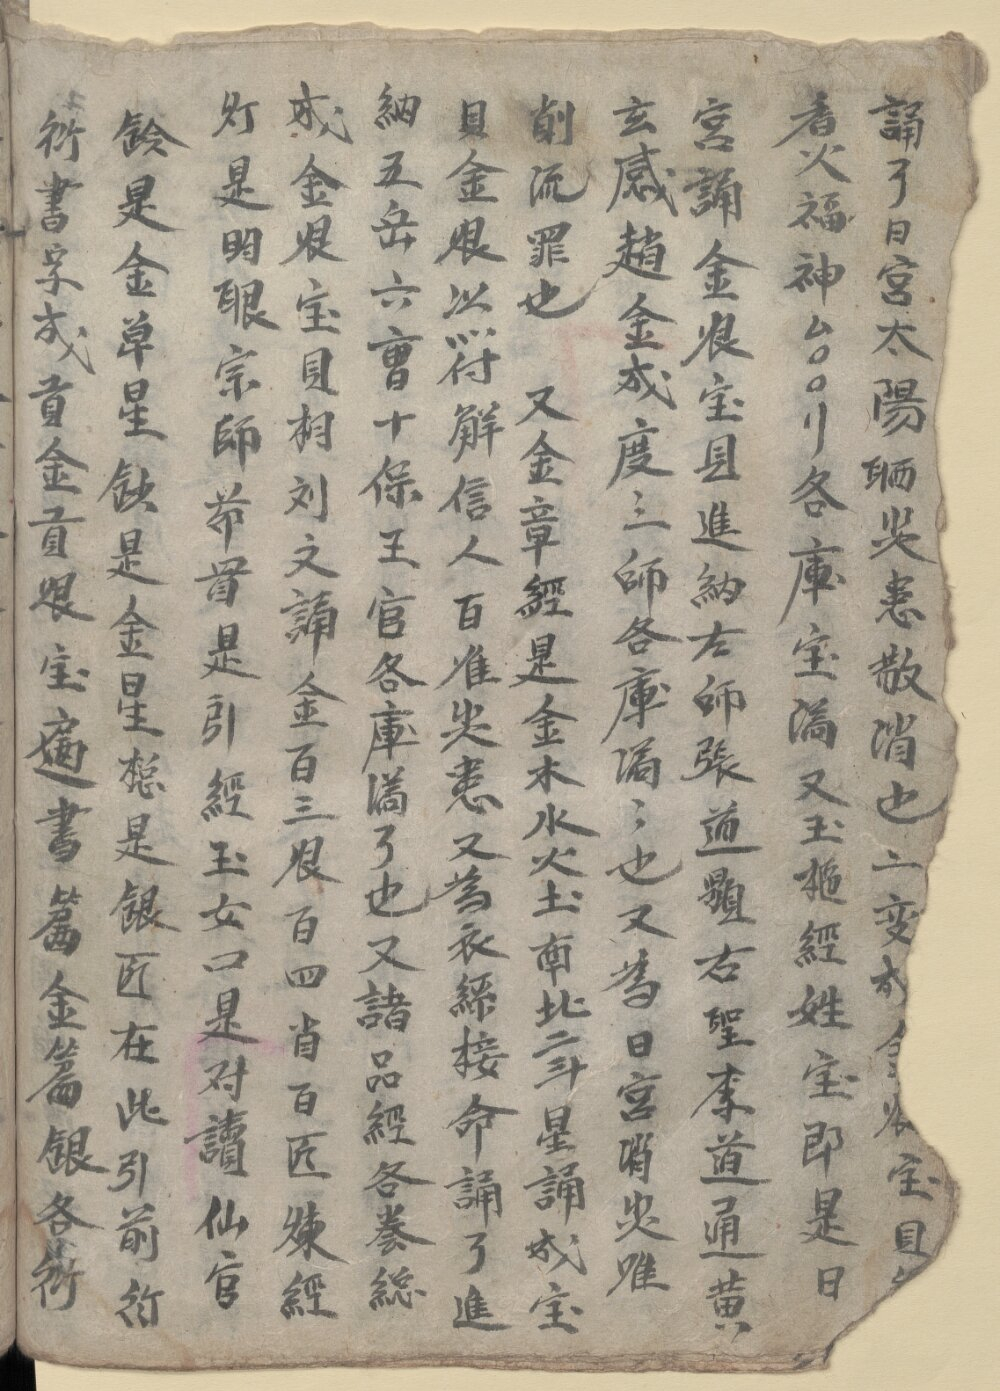 誦了日宮太陽晒災患散消也二变成金𨰿宝貝
香火福神厶〇〇刂各庫宝滿又玉枢經姓宝即是日
宮誦金𨰿宝貝進納左師張道顯右聖李道通黄
玄感趙金成度三師各庫滿〻也又為日宮消災唯
削流罪也 又金章經是金木水火土南北二斗星誦成宝
貝金𨰿以付解信人百难災患又為衣綵接命誦了進
納五岳六曹十保王官各庫滿了也又諸品經各卷総
成金𨰿宝貝相刘文誦金百三𨰿百四肖百匠煉經
灯是明眼宗師茆眉是引經玉女口是对讀仙官
鈴是金草星鈸是金星槌是銀匠在此引前行
衍書字成首金貢𨰿宝遍書篇金篇銀各衍